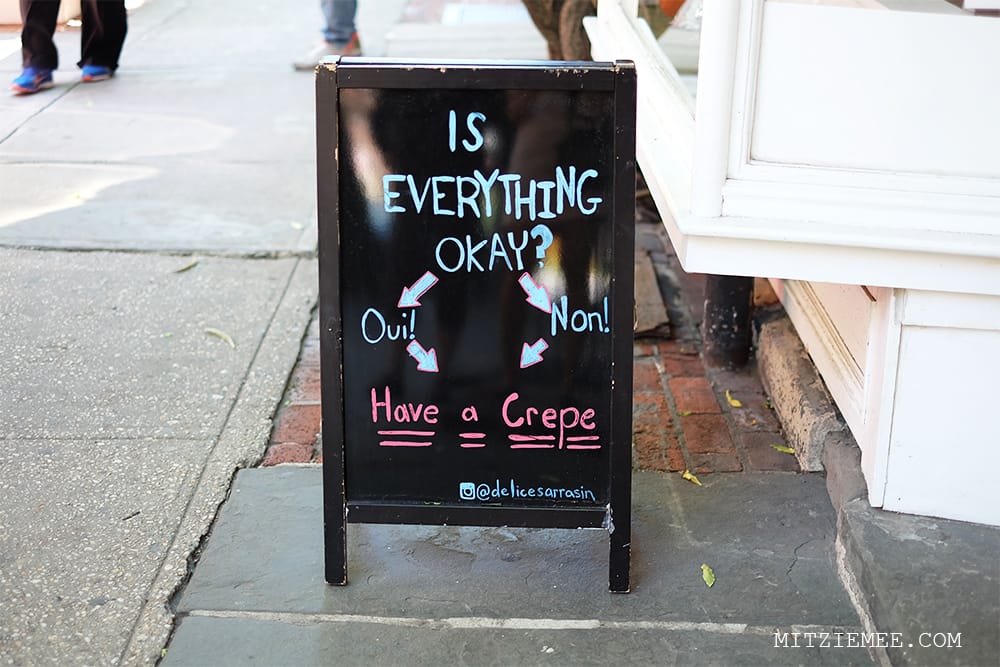 IS
EVERYTHING
OKAY?
Oui! Non!
Have a Crepe
@delicesarrasin
MITZIEMEE.COM